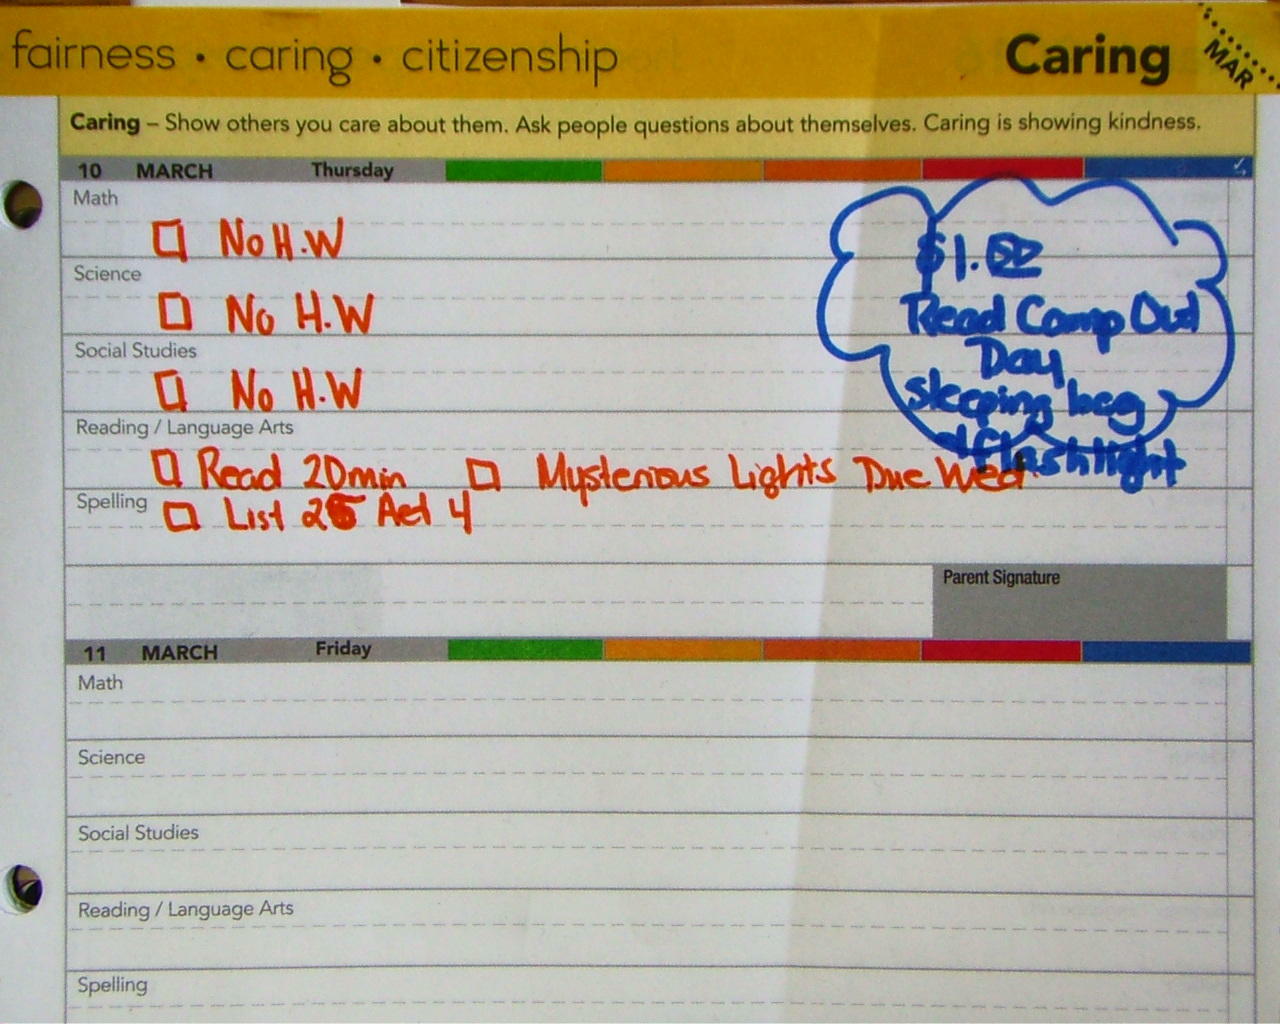 fairness • caring • citizenship Caring MAR
Caring – Show others you care about them. Ask people questions about themselves. Caring is showing kindness.
10 MARCH Thursday
Math
No H.W
Science
No H.W
Social Studies
No H.W
Reading / Language Arts
Read 20min Mysterious Lights Due Wed
Spelling
List 25 Act 4
$1.00
Read Camp Out
Day
sleeping bag
flashlight
Parent Signature
11 MARCH Friday
Math
Science
Social Studies
Reading / Language Arts
Spelling